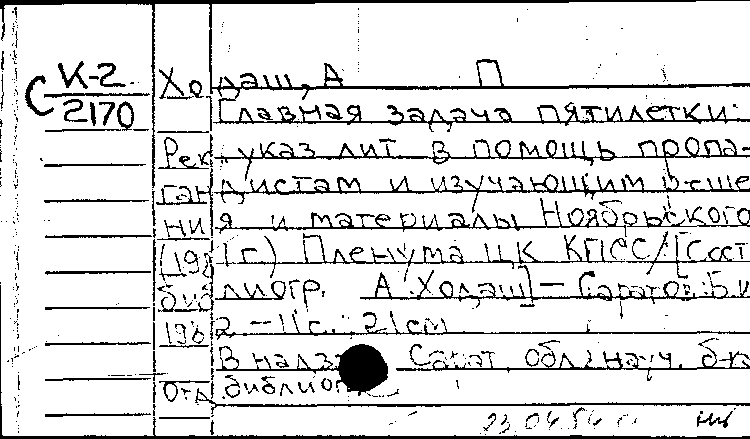 С К-2 Ходаш, А П
2170 Главная задача пятилетки:
Рек. указ лит. в помощь пропа-
гандистам и изучающим реше
ния и материалы Ноябрьского
(1981 г.) Пленума ЦК КПСС/[Сост
библиогр. А. Ходаш] – Саратов: Б.и
1982 – 11 с.; 21 см
В надз. Сарат. обл. науч. б-ка
Отд библиог
23.04.84 г.